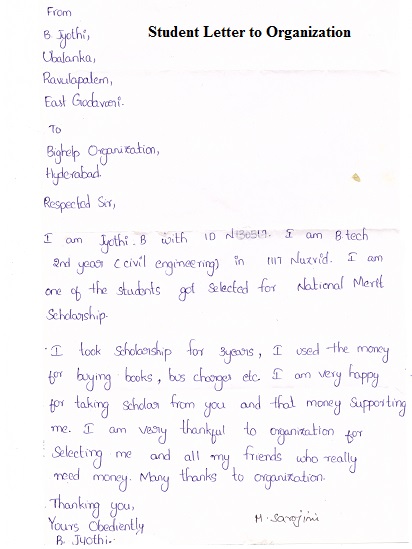 Student Letter to Organization
From
B Jyothi,
Ubalanka,
Ravulapalem,
East Godavari.
To
Bighelp Organization,
Hyderabad.
Respected Sir,
I am Jyothi.B with ID I am B.tech
2nd year (civil engineering) in IIIT Nuzvid. I am
one of the students got selected for National Merit
Scholarship.
I took Scholarship for 3years, I used the money
for buying books, bus charges etc. I am very happy
for taking scholar from you and that money supporting
me. I am very thankful to organization for
Selecting me and all my friends who really
need money. Many thanks to organization.
Thanking you,
Yours Obediently
B. Jyothi.
M. Sarojini